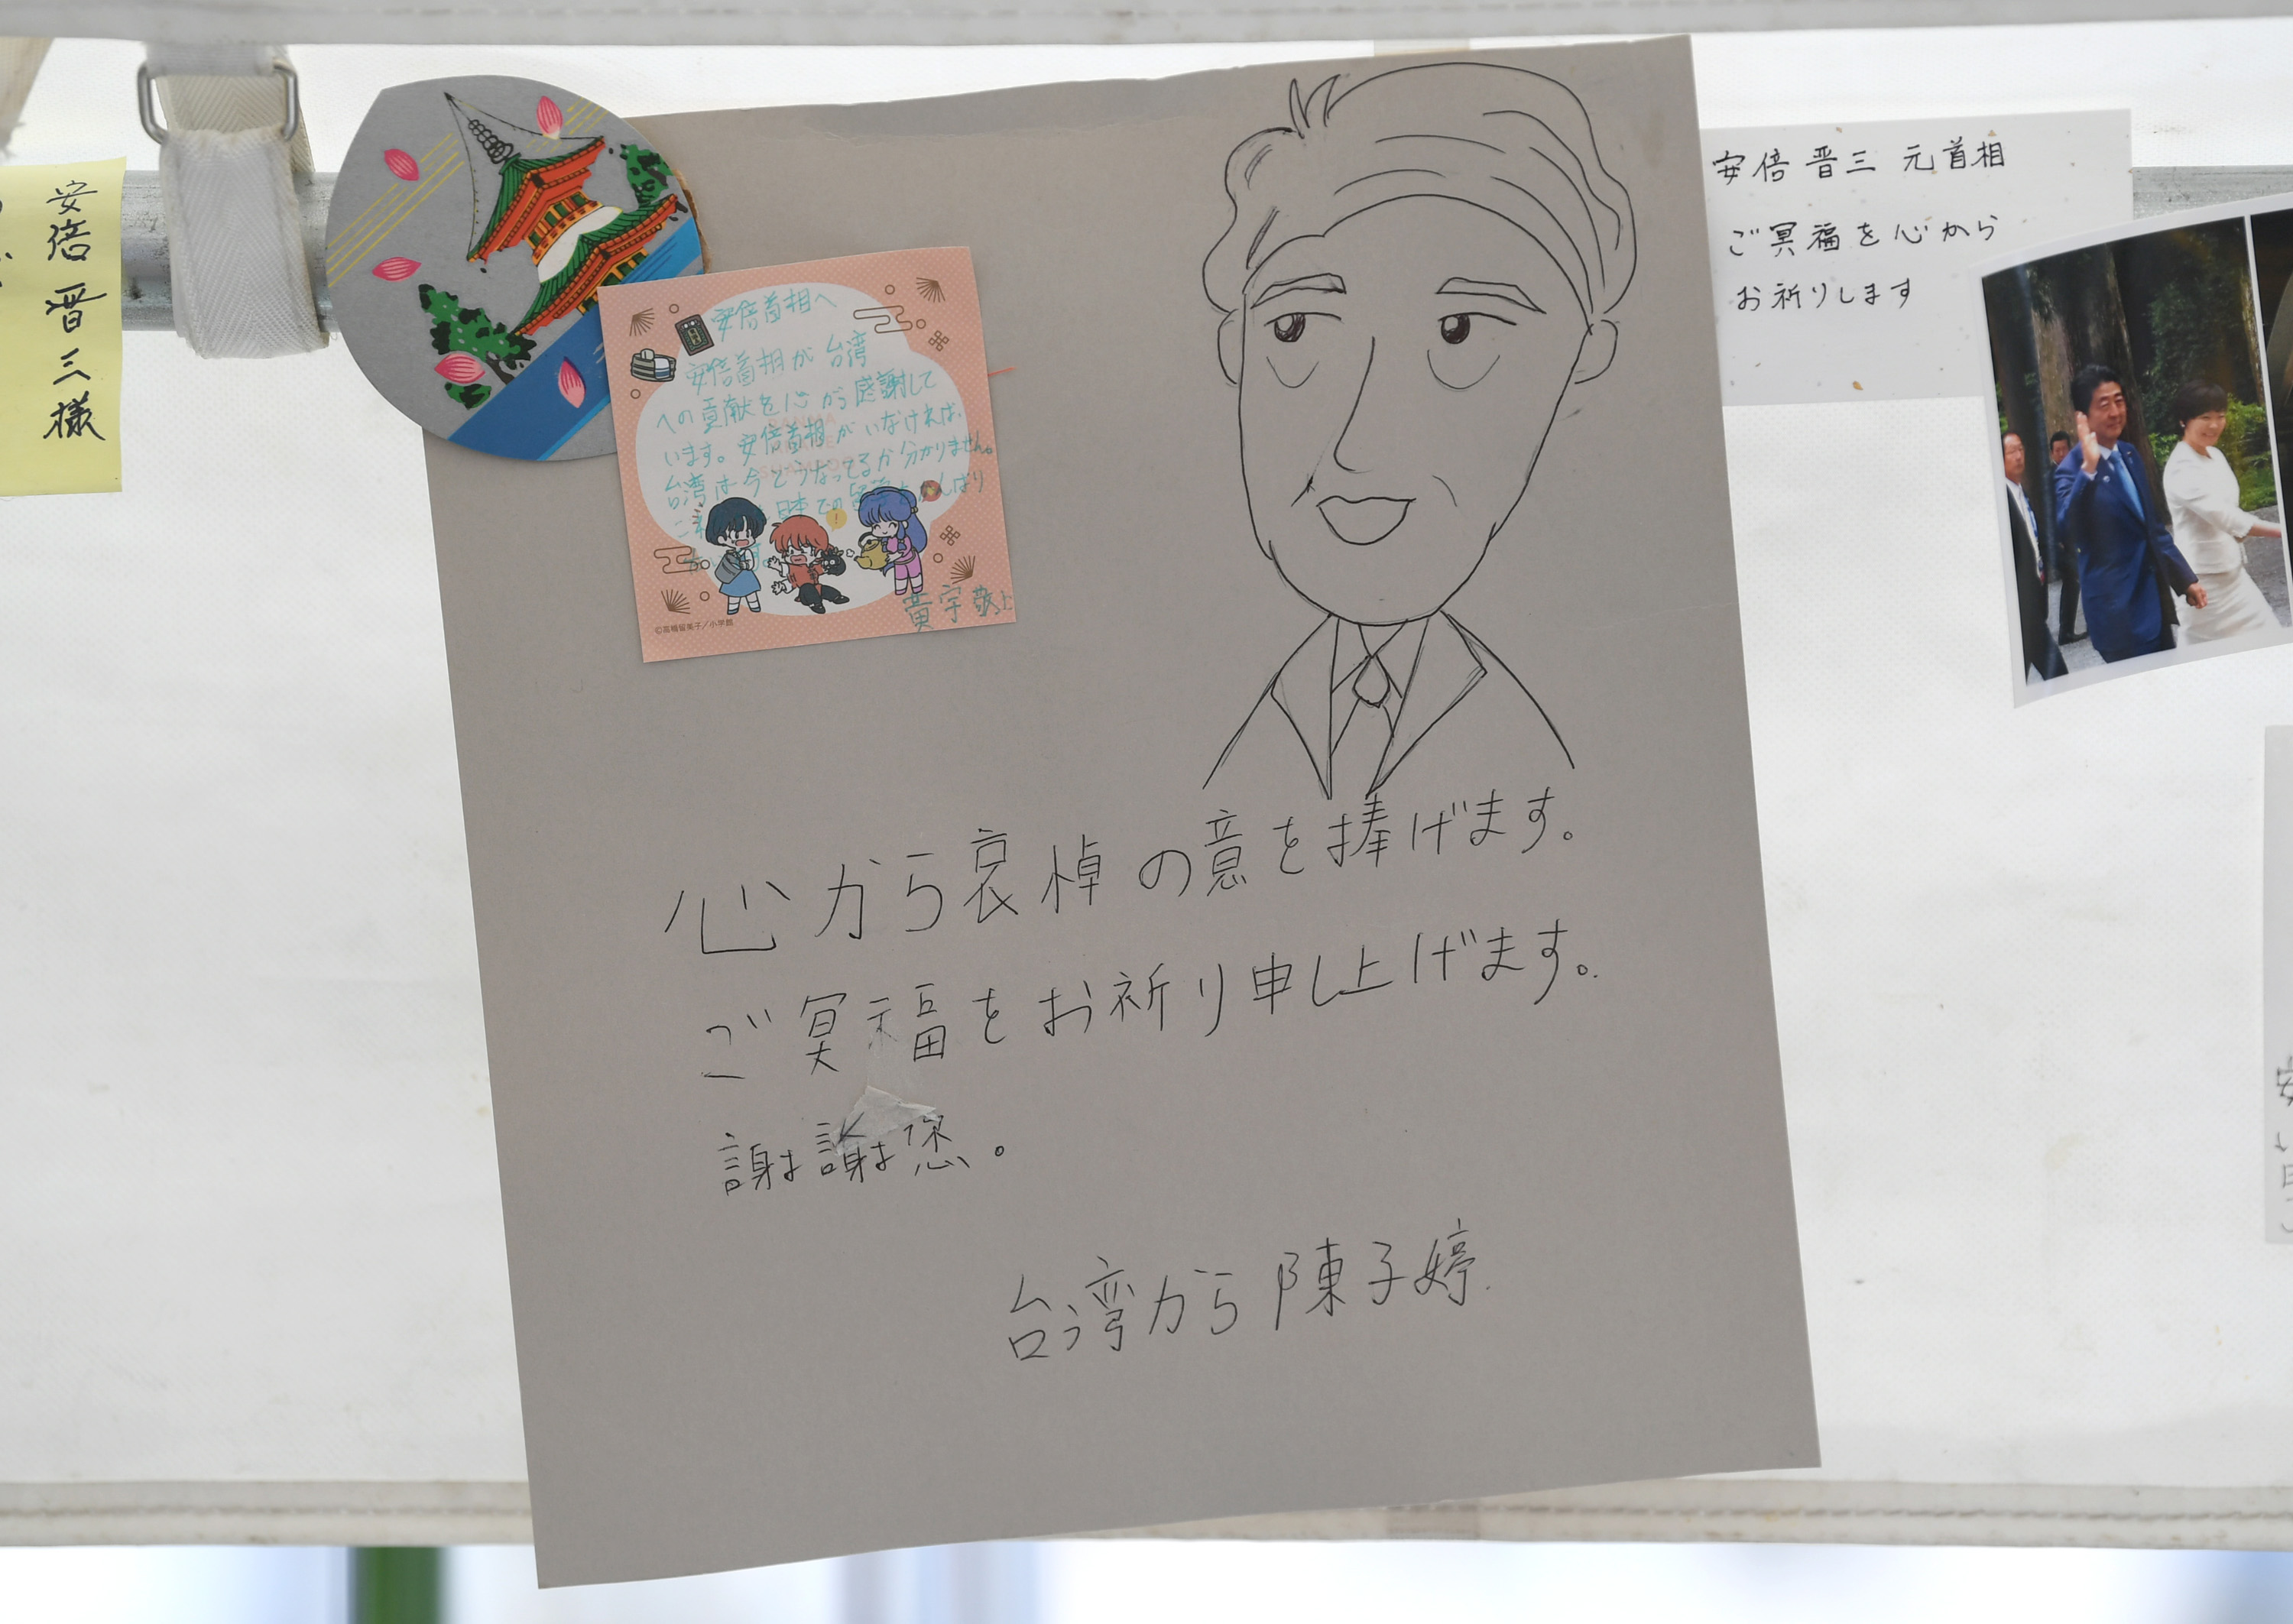 安倍晋三様
安倍首相へ
安倍首相が台湾
への貢献を心から感謝して
います。安倍首相がいなければ、
台湾は今どうなってるか分かりません。
日本での
黃宇 敬上
©高橋留美子/小学館
心から哀悼の意を捧げます。
ご冥福をお祈り申し上げます。
謝謝您。
台湾から 陳子婷.
安倍晋三 元首相
ご冥福を心から
お祈りします